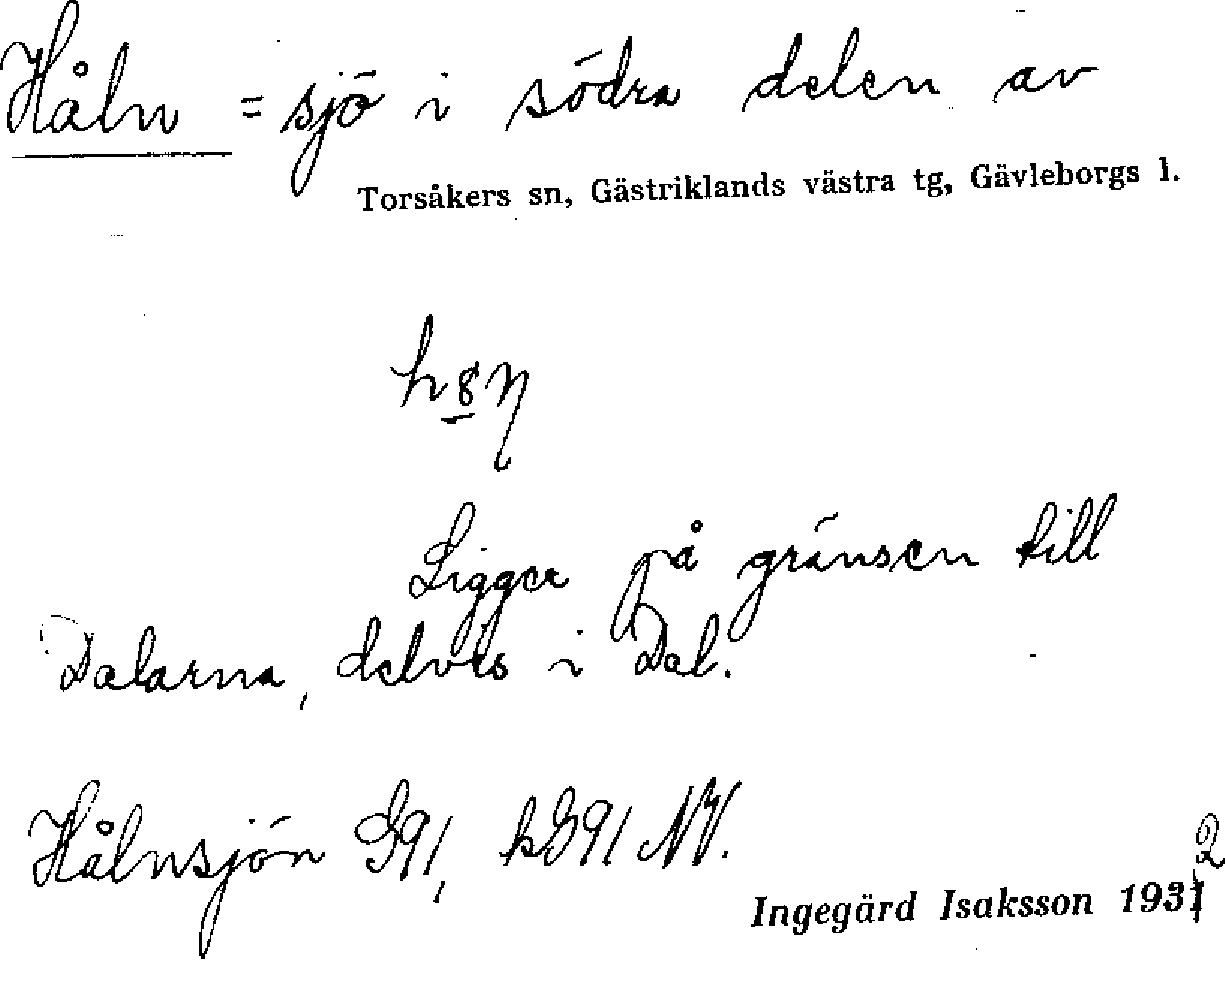 Håln = sjö i södra delen av
Torsåkers sn, Gästriklands västra tg, Gävleborgs l.
Ligger på gränsen till
Dalarna, delvis i Dal.
Hålnsjön G91, kG91 NV.
2
Ingegärd Isaksson 1931